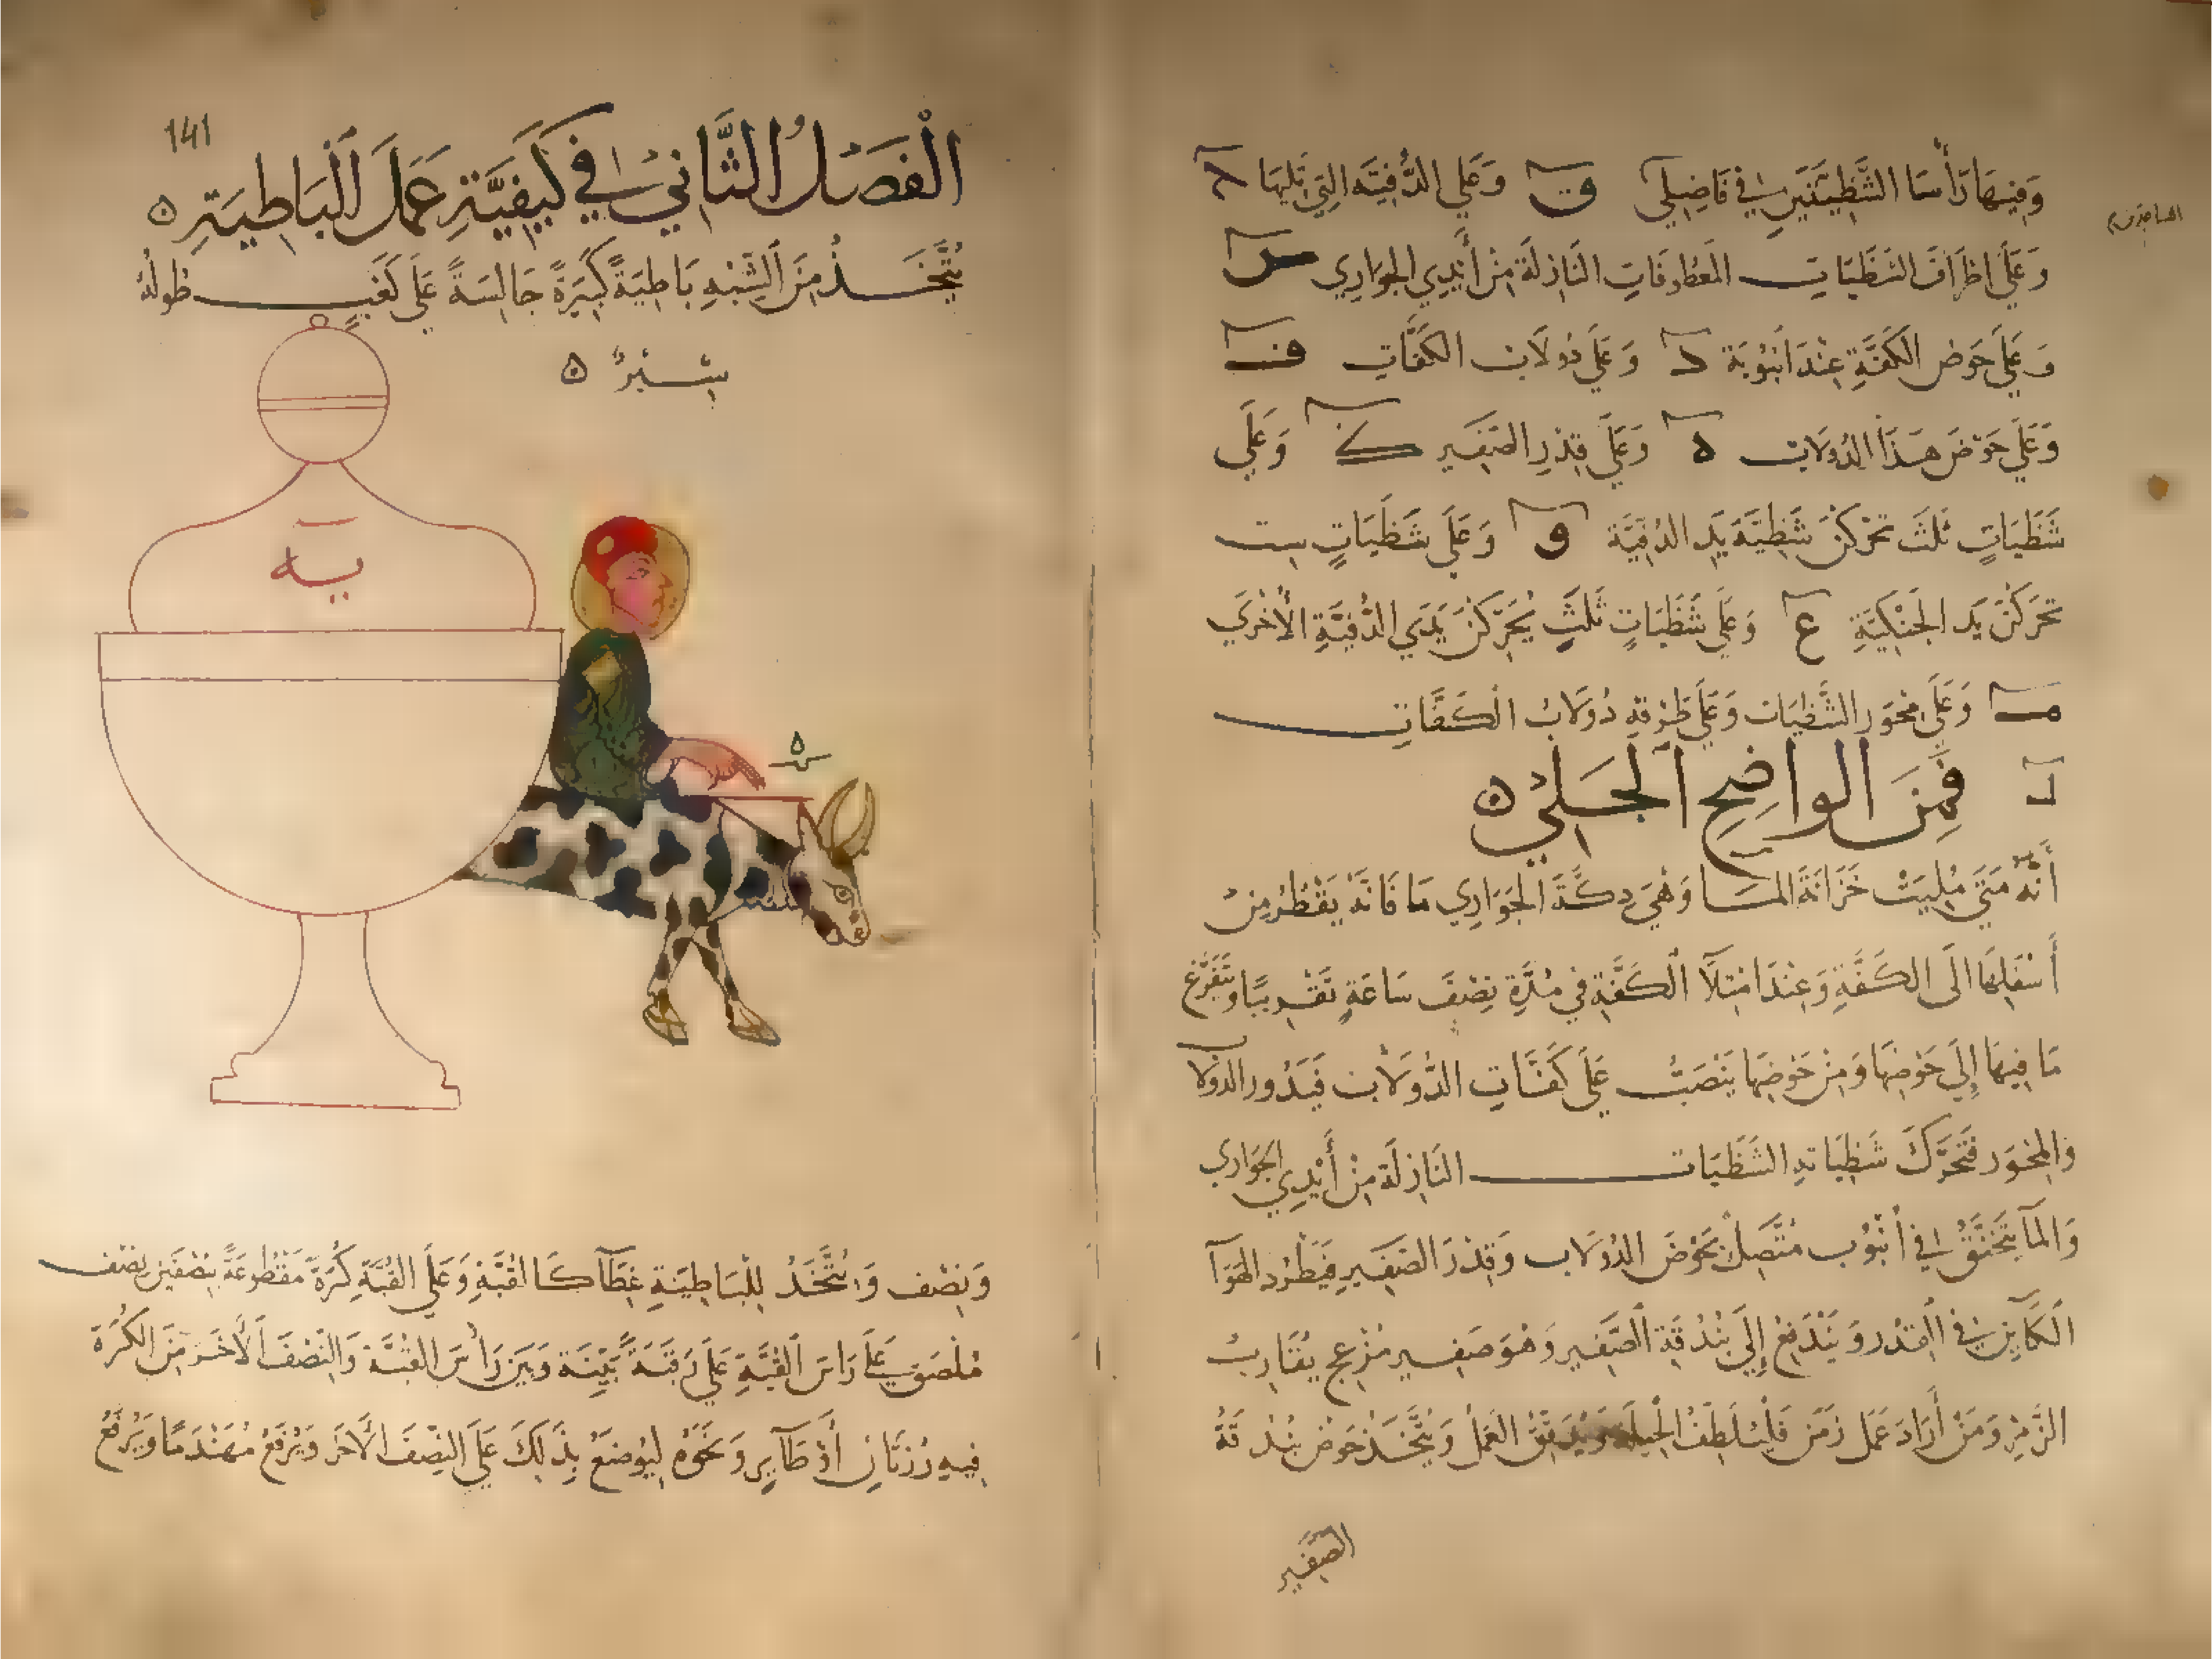 وَفِيهَا رَأْسَا الشَّظِيَّتَيْنِ في فَاضِلِي ق وَعَلَى الدُّفِيَّه التِي تَلِيهَا
وَعَلَى اطْرَافَ الشَظَيَات النَازِلَة مِنْ أَيْدِي الجوَارِي س
وَعَلَى حَوض الكَفَّةِ عِنْدَ انْبُوبَة د وَعَلَى دُولَاب الكفَّاتِ ف
وَعَلَى حَوْضَ هَذَا الدُولَاب ه وَعَلَى قِدْرِ الصَفِير ك وَعَلَى
شَظَيَاتٍ ثَلَث تحَرِّكْنَ شَظِيَّةَ يَدِ الدُفِيَّة و وَعَلَى شَظَيَاتٍ سِت
تَحَرِّكْنَ يَد الجَنْكِيَّةِ ع وَعَلَى شَظَيَاتٍ ثَلَثٍ يُحَرِّكْنَ يَدَي الدُّفِيَّةِ الأُخْرَي
م وَعَلَى مِحْوَر الشَّظَيَات وَعَلَى طَرْفِهِ دُولَابُ الكَفَّاتِ
ل فَمِنَ الواضِحِ الجَلِيِّ
أَنَّهُ مَتَى مُلِيَتْ خَزَانَةَ المَا وَهْيَ دِكَّةَ الجَوَارِي مَا فَانَّهُ يَقْطُرُ مِنْ
أَسْفَلِهَا الَى الكَفَّةِ وَعِنْدَ امْتِلَآ الكَفَّةِ فِي مُدَّةِ نِصْفَ سَاعَةٍ تَقْرِيبًا وَتَفَرَّغ
مَا فِيهَا إِلَى حَوْضِهَا وَمِنْ حَوْضِهَا يَنْصَبُّ عَلَى كَفَّاتِ الدُّولَاب فَيَدُور الدولا
والمِحْوَر فَتَحَرَّكَ شَظِيَاتهِ الشَّظَيَات النَازِلَة مِنْ أَيْدِي الجَوَارِي
وَالمَآ يَخْتَنِقُ فِي أُنْبُوب مُتَّصِلٍ بَحَوْضَ الدُولَاب وَقِدْرَ الصَفِير فَيَطْرُد الهَوَآ
الكَآيِنِ فِي القِدْر وَيَنْدَفِعُ إِلَى بُنْدُقَةِ الصَّفِير وَهُوَ صَفِير مُزْعِج يُقَارِبُ
الزَمْرِ وَمَنْ أَرَادَ عَمَل زَمْر فَلْيُلَطِّف الحِيلَة وَيُدَقِّق العَمَل وَيتَّخَذْ حَوْض بُنْدُقَةُ
الصَّفِير
141
الفَصْلُ الثَّانِيْ فِي كَيْفِيَّةِ عَمَلَ البَاطِيَةِ
يُتَّخَذُ مِنَ الشَبْهِ بَاطِيَةً كَبِيَرَةً جَالِسَةً عَلَى كَعْبٍ طُولُهُ
شِبْرٌ
يه
ه
وَنِصْف وَيُتَّخَذُ لِلْبَاطِيَةِ غِطَآ كَالقُبَّةِ وَعَلَى القُبَّةِ كُرَةَ مَقْطُوعَةً بِنِصْفَيْنِ نِصْف
مُلْصَق عَلَى رَاسَ القُبَّةِ عَلَى رَقَبَةً بَيْنَهُ وَبَيْنَ رَأْسَ القُبَّةِ وَالنِّصْفَ الأَخَر مِنَ الكُرَةَ
فِيهِ رُزَّتَانِ أَوْ طَآيِرٍ وَنَحْوُهِ لِيُوضَعُ بِذَلِكَ عَلَى النِصْفَ الأَخَر وَيُرْفَعُ مُهَنْدَمًا وَيُرْفَعُ